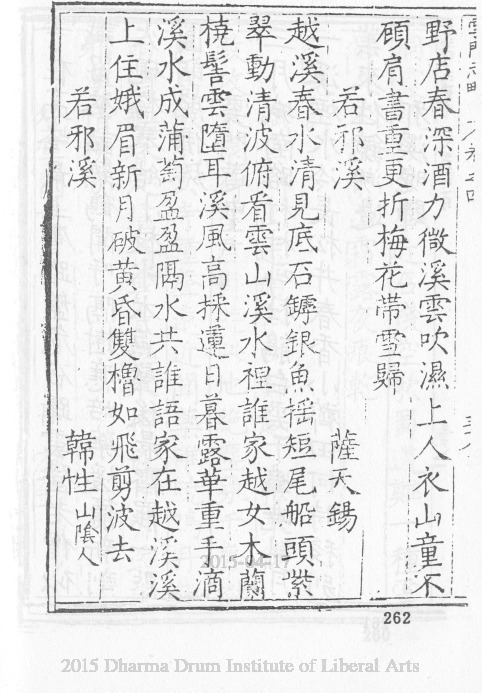 野店春深酒力微溪雲吹濕上人衣山童不
頋肩書重更折梅花帶雪歸
若邪溪 薩天錫
越溪春水清見底石罅銀魚摇短尾船頭紫
翠動清波俯看雲山溪水裡誰家越女木蘭
橈髻雲墮耳溪風高採蓮日暮露華重手滴
溪水成蒲萄盈盈隔水共誰語家在越溪溪
上住娥眉新月破黄昏雙櫓如飛剪波去
若邪溪 韓性 山陰人
262
2015-04-17
2015 Dharma Drum Institute of Liberal Arts